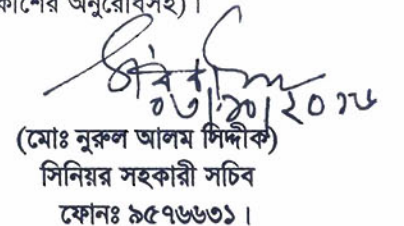 কাশের অনুরোধসহ)।
০৩|১০|২০১৬
(মোঃ নুরুল আলম সিদ্দীক)
সিনিয়র সহকারী সচিব
ফোনঃ ৯৫৭৬৬৩১।